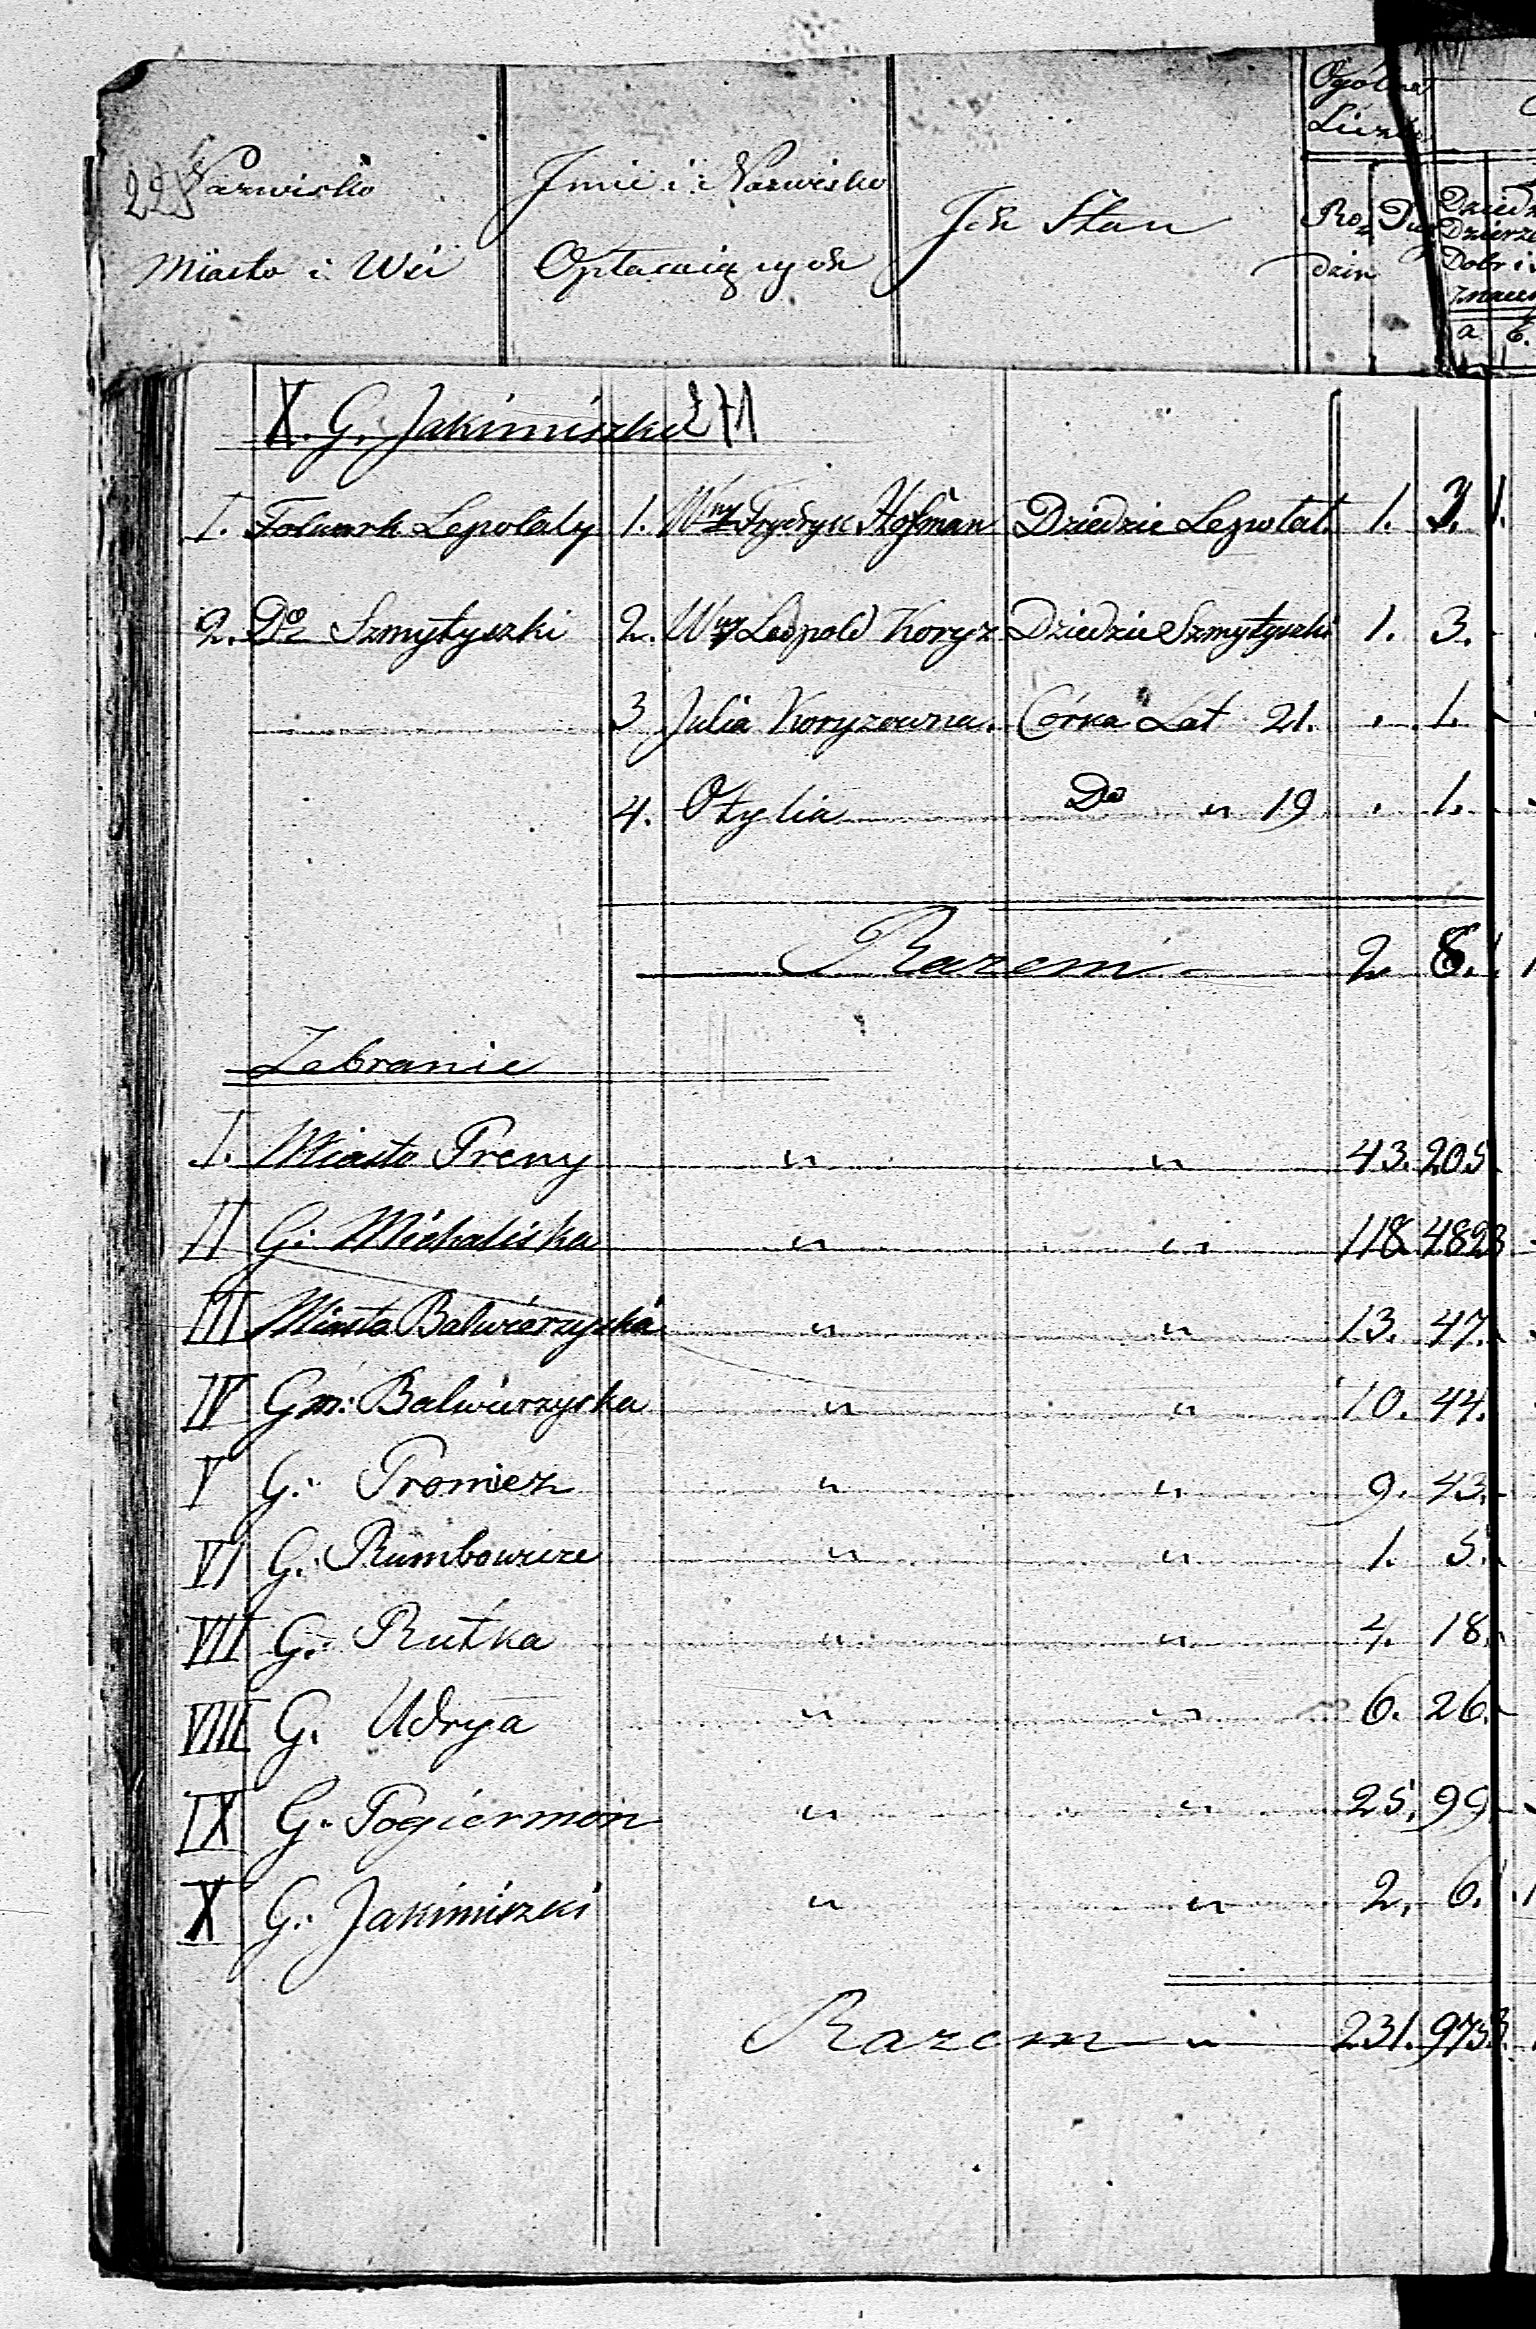 Ogólna
Liczba
225 Nazwisko Imie i Nazwisko Ich Stan Ro Du Dziedz
Dzierz
Miasto i Wsi Opłacaiących dzin Dobr i
Znacz
a b.
X. G. Jakimiszki 271
1. Folwark Lepołaty 1. Wny Frydryk Hofman Dziedzic Lepołat. 1. 3. 1.
2. Do Szmytyszki 2. Wny Leopold Koryz Dziedzic Szmytyszki 1. 3.
3 Julia Koryzowna. Córka Lat 21. . 1.
4. Otylia Do " 19 . 1.
Razem 2 8. 1
Zebranie
I. Miasto Preny " " 43. 205
II G: Michaliszka " " 118. 482
III Miasto Balwierzyszka " " 13. 47.
IV Gm: Balwierzyska " " 10. 44.
V G: Proniez " " 9. 43.
VI G: Rumbowicze " " 1. 5.
VII G: Rutka " " 4. 18.
VIII G. Udrya " " 6. 26.
IX G. Pogiermon " " 25. 99
X G: Jakimiszki " " 2. 6. 1.
Razem " 231. 975